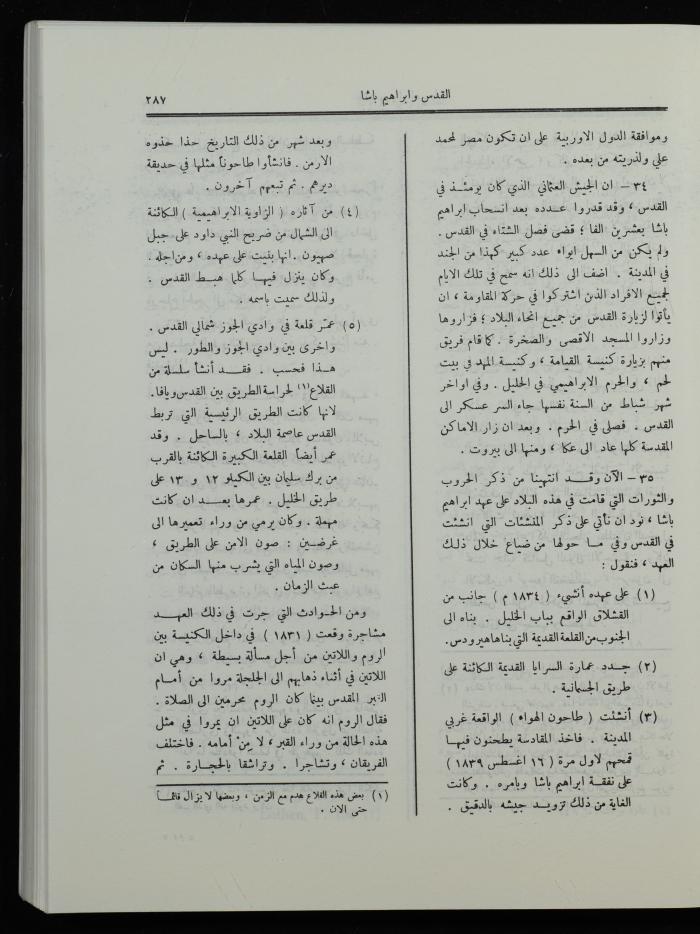 القدس وابراهيم باشا
٢٨٧
وموافقة الدول الاوربية على ان تكون مصر لمحمد
علي ولذريته من بعده .
٣٤ – ان الجيش العثماني الذي كان يومئذ في
القدس ، وقد قدروا عدده بعد انسحاب ابراهيم
باشا بعشرين الفا ؛ قضى فصل الشتاء في القدس .
ولم يكن من السهل ايواء عدد كبير كهذا من الجند
في المدينة . اضف الى ذلك انه سمح في تلك الايام
لجميع الافراد الذين اشتركوا في حركة المقاومة ، ان
يأتوا لزيارة القدس من جميع انحاء البلاد ؛ فزاروها
وزاروا المسجد الاقصى والصخرة . كما قام فريق
منهم بزيارة كنيسة القيامة ، وكنيسة المهد في بيت
لحم ، والحرم الابراهيمي في الخليل . وفي اواخر
شهر شباط من السنة نفسها جاء السر عسكر الى
القدس . فصلى في الحرم . وبعد ان زار الاماكن
المقدسة كلها عاد الى عكا ، ومنها الى بيروت .
٣٥ – الآن وقد انتهينا من ذكر الحروب
والثورات التي قامت في هذه البلاد على عهد ابراهيم
باشا ، نود ان نأتي على ذكر المنشئات التي انشئت
في القدس وفي ما حولها من ضياع خلال ذلك
العهد ، فنقول :
(١) على عهده أنشيء ( ١٨٣٤ م ) جانب من
القشلاق الواقع بباب الخليل . بناه الى
الجنوب من القلعة القديمة التي بناها هيرودس .
(٢) جدد عمارة السرايا القديمة الكائنة على
طريق الجسمانية .
(٣) أنشئت ( طاحون الهواء ) الواقعة غربي
المدينة . فاخذ المقادسة يطحنون فيها
قمحهم لاول مرة ( ١٦ اغسطس ١٨٣٩ )
على نفقة ابراهيم باشا وبامره . وكانت
الغاية من ذلك تزويد جيشه بالدقيق .
وبعد شهر من ذلك التاريخ حذا حذوه
الارمن . فانشأوا طاحوناً مثلها في حديقة
ديرهم . ثم تبعهم آخرون .
(٤) من آثاره ( الزاوية الابراهيمية ) الكائنة
الى الشمال من ضريح النبي داود على جبل
صهيون . انها بنيت على عهده ، ومن اجله .
وكان ينزل فيها كلما هبط القدس .
ولذلك سميت باسمه .
(٥) عمّر قلعة في وادي الجوز شمالي القدس .
واخرى بين وادي الجوز والطور . ليس
هذا فحسب . فقد أنشأ سلسلة من
القلاع(١) لحراسة الطريق بين القدس ويافا .
لانها كانت الطريق الرئيسية التي تربط
القدس عاصمة البلاد ، بالساحل . وقد
عمر أيضاً القلعة الكبيرة الكائنة بالقرب
من برك سليمان بين الكيلو ١٢ و ١٣ على
طريق الخليل . عمرها بعد ان كانت
مهملة . وكان يرمي من وراء تعميرها الى
غرضين : صون الامن على الطريق ،
وصون المياه التي يشرب منها السكان من
عبث الزمان .
ومن الحوادث التي جرت في ذلك العهد
مشاجرة وقعت ( ١٨٣١ ) في داخل الكنيسة بين
الروم واللاتين من أجل مسألة بسيطة ، وهي ان
اللاتين في أثناء ذهابهم الى الجلجلة مروا من أمام
القبر المقدس بينما كان الروم محرمين الى الصلاة .
فقال الروم انه كان على اللاتين ان يمروا في مثل
هذه الحالة من وراء القبر ، لا مِنْ أمامه . فاختلف
الفريقان ، وتشاجرا . وتراشقا بالحجارة . ثم
(١) بعض هذه القلاع هدم مع الزمن ، وبعضها لا يزال قائماً
حتى الان .